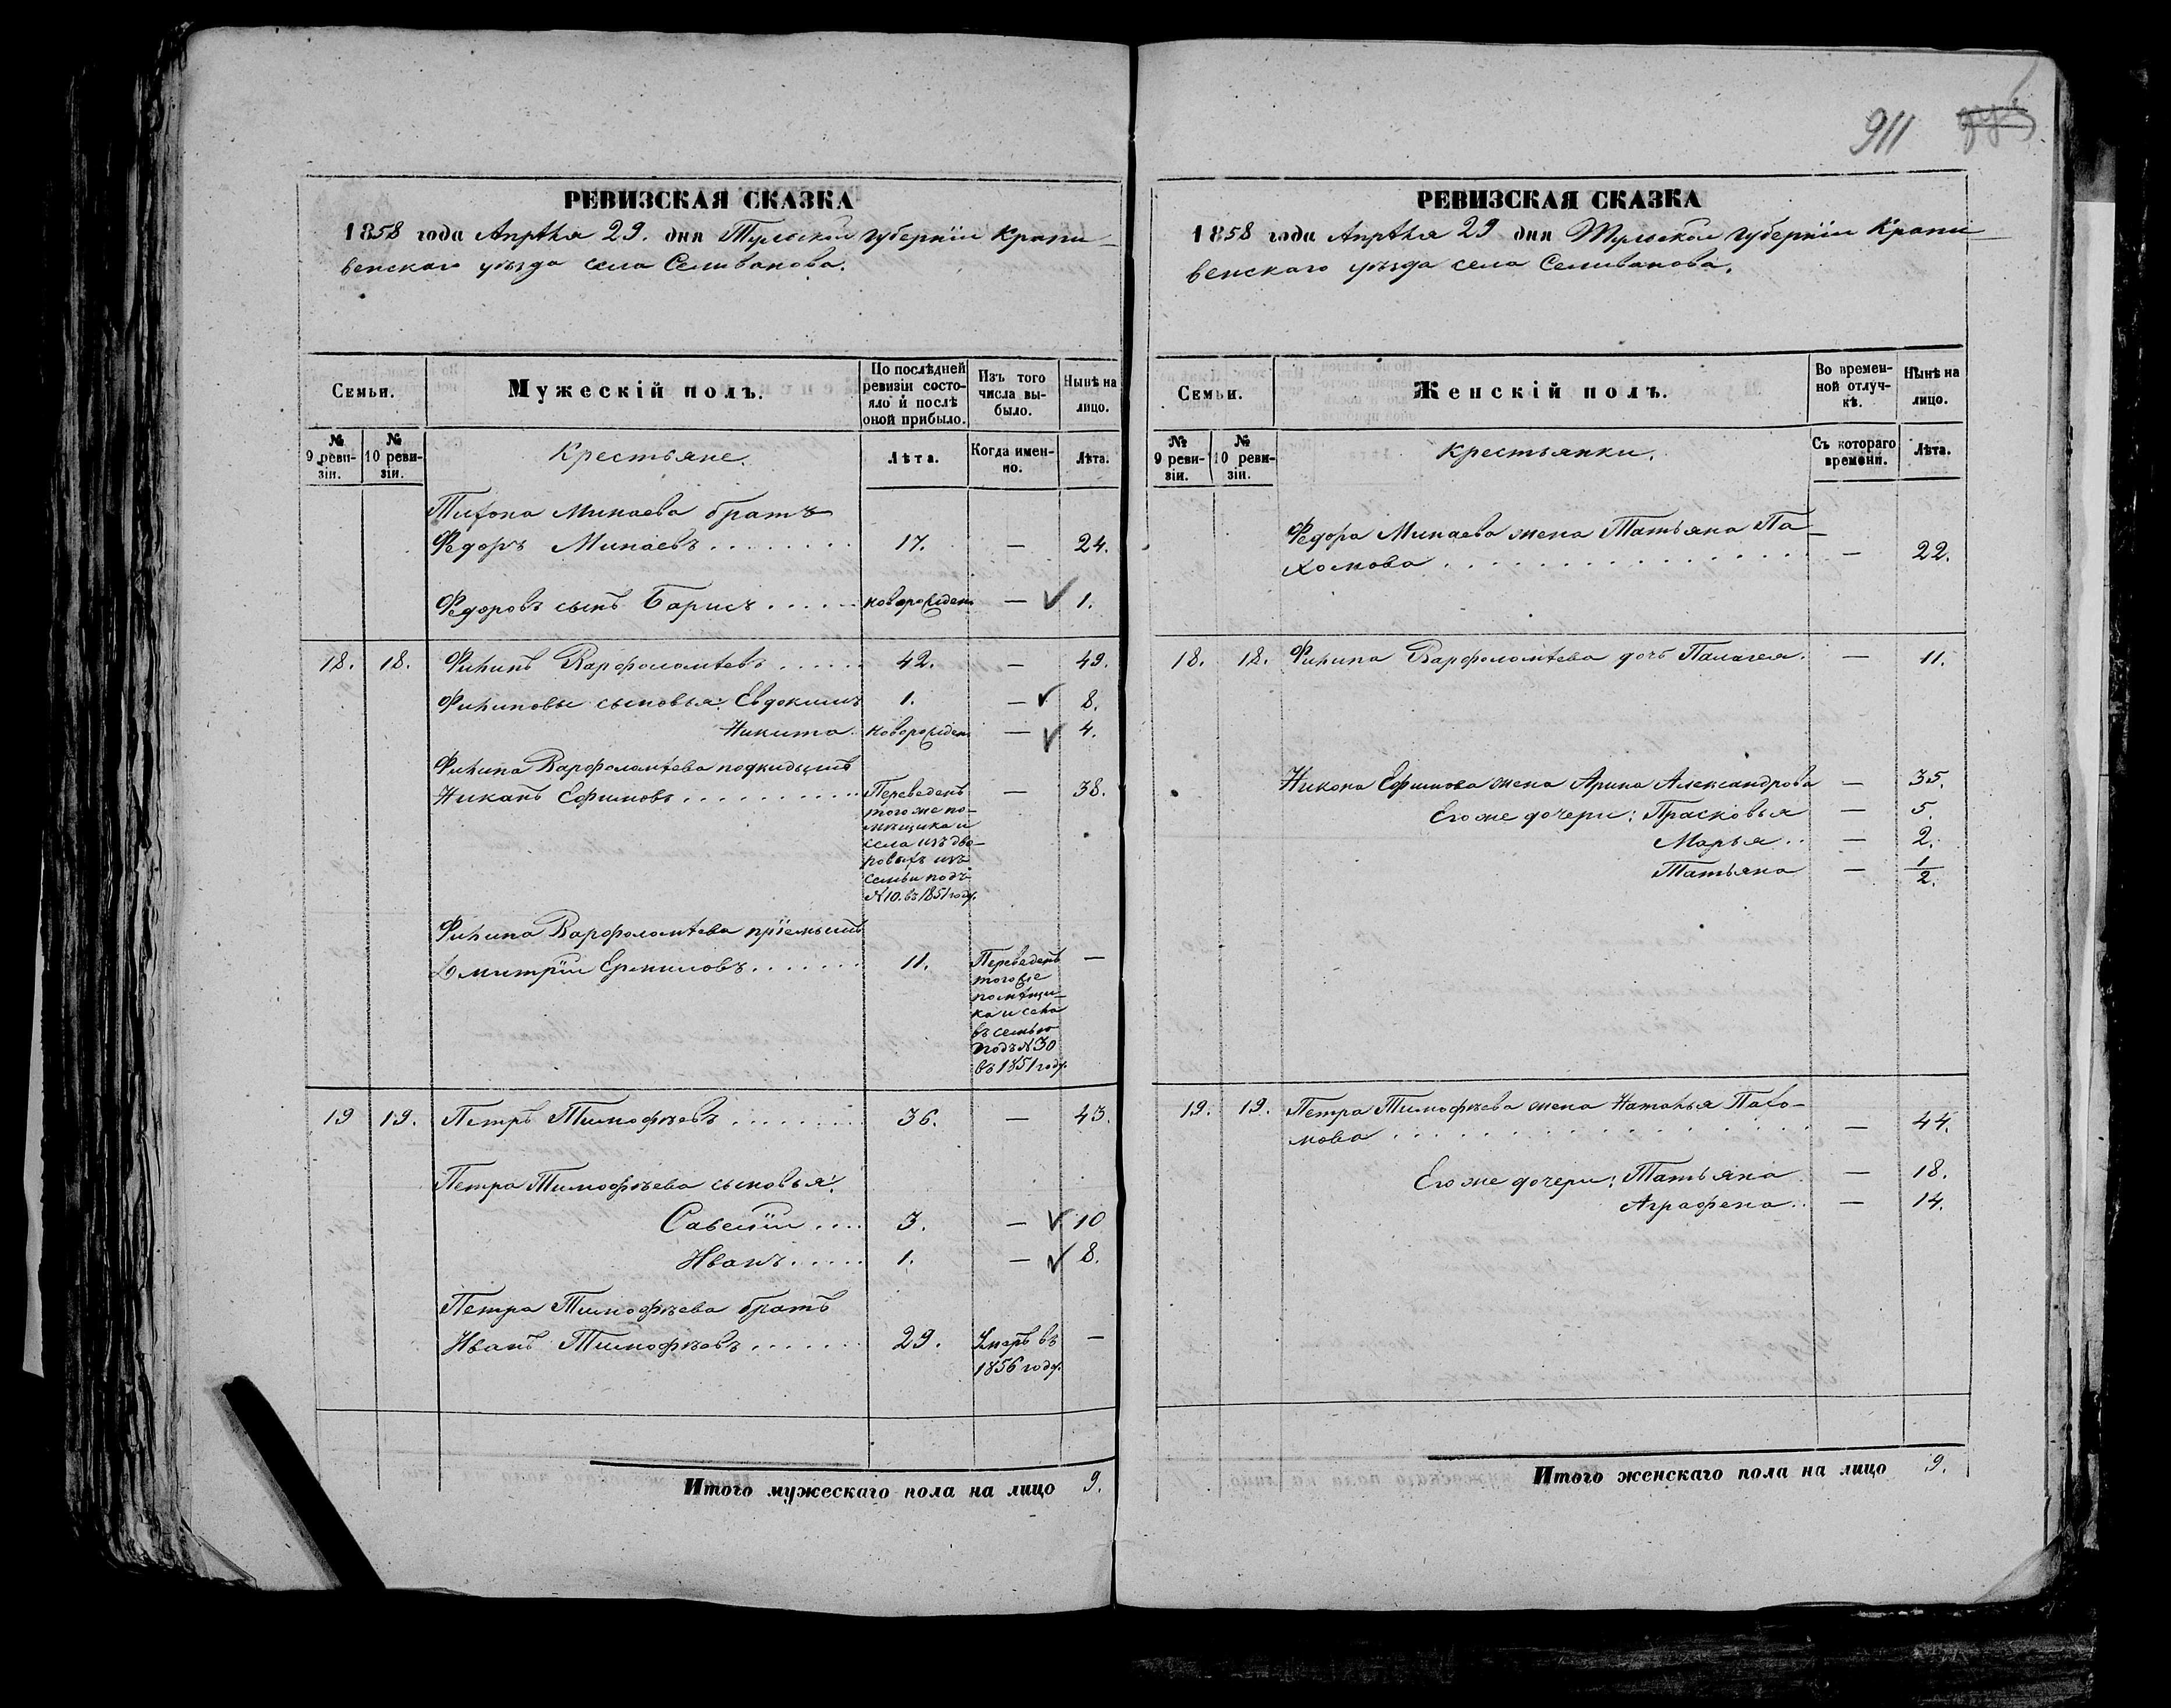 911
РЕВИЗСКАЯ СКАЗКА
1858 года Апрѣля 29. дня Тульской губерніи Крапи-
венскаго уѣзда села Селиванова.
Семьи.
Мужескій полъ.
По послѣдней ревизіи состо-яло и послѣ оной прибыло.
Изъ того числа вы-было.
Нынѣ на лицо.
№ 9 реви-зіи.
№ 10 реви-зіи.
Крестьяне.
Лѣта.
Когда имен-но.
Лѣта.
Тихона Минаева братъ
Федоръ Минаевъ 17. — 24.
Федоровъ сынъ Барисъ новорожден — 1.
18. 18. Филипъ Варфоломѣевъ 42. — 49.
Филиповы сыновья: Евдокимъ 1. — 8.
Никита новорожден — 4.
Филипа Варфоломѣева подкидышъ
Никанъ Ефимовъ — 38.
Переведенъ
того же по-
мѣщика и
села изъ дво-
ровыхъ изъ
семьи подъ
№ 10. въ 1851 году.
Филипа Варфоломѣева пріемышъ
Дмитрій Ермиловъ 11. —
Переведенъ
тогоже
помѣщи-
ка и села
въ семью
подъ № 30
въ 1851 году.
19 19. Петръ Тимофѣевъ 36. — 43.
Петра Тимофѣева сыновья:
Савелій 3. — 10
Иванъ 1. — 8.
Петра Тимофѣева братъ
Иванъ Тимофѣевъ 29. Умеръ въ —
1856 году.
Итого мужескаго пола на лицо 9.
РЕВИЗСКАЯ СКАЗКА
1858 года Апрѣля 29 дня Тульской губерніи Крапи-
венскаго уѣзда села Селиванова.
Семьи.
Женскій полъ.
Во времен-ной отлуч-кѣ.
Нынѣ на лицо.
№ 9 реви-зіи.
№ 10 реви-зіи.
Крестьянки.
Съ котораго времени.
Лѣта.
Федора Минаева жена Татьяна Па-
хомова — 22.
18. 18. Филипа Варфоломѣева дочь Палагея. — 11.
Никона Ефимова жена Арина Александрова — 35.
Его же дочери: Прасковья — 5.
Марья — 2.
Татьяна — 1/2.
19. 19. Петра Тимофѣева жена Наталья Пахо-
мова — 44.
Его же дочери: Татьяна — 18.
Аграфена — 14.
Итого женскаго пола на лицо 9.